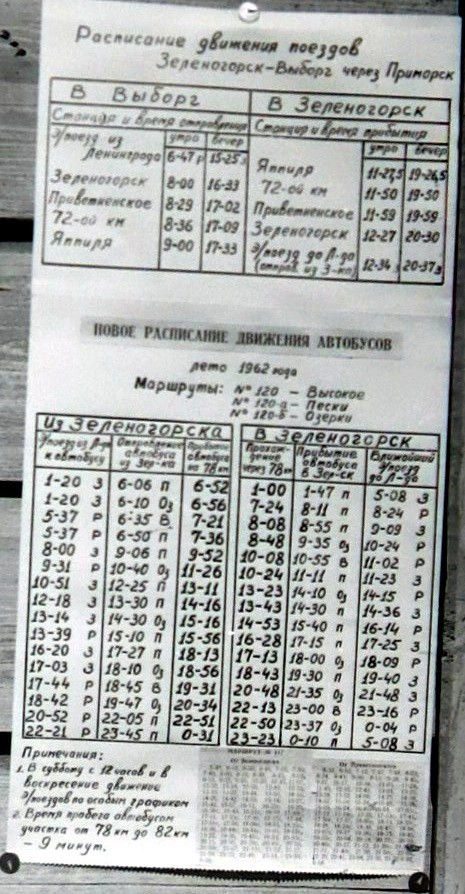 Расписание движения поездов
Зеленогорск-Выборг через Приморск
В Выборг
Станция и время отправления
утро вечер
Э/поезд из Ленинграда 6-47 Р 15-25 З
Зеленогорск 8-00 16-33
Приветненское 8-29 17-02
72-ой км 8-36 17-09
Яппиля 9-00 17-33
В Зеленогорск
Станция и время прибытия
утро вечер
Яппиля 11-27,5 19-26,5
72-ой км 11-50 19-50
Приветненское 11-59 19-59
Зеленогорск 12-27 20-30
Э/поезд до Л-да
(отправ. из З-ка) 12-34 З 20-37 З
НОВОЕ РАСПИСАНИЕ ДВИЖЕНИЯ АВТОБУСОВ
лето 1962 года
Маршруты: № 120 – Высокое
№ 120-а – Пески
№ 120-б – Озерки
Из Зеленогорска
Э/поезд из Л-да к автобусу
Отправление автобуса из Зер-ка
Прибытие автобуса на 78 км
1-20 З 6-06 П 6-52
1-20 З 6-10 Оз 6-56
5-37 Р 6-35 В 7-21
5-37 Р 6-50 П 7-36
8-00 З 9-06 П 9-52
9-31 Р 10-40 Оз 11-26
10-51 З 12-25 П 13-11
12-18 З 13-30 П 14-16
13-14 З 14-30 Оз 15-16
13-39 Р 15-10 П 15-56
16-20 З 17-27 П 18-13
17-03 З 18-10 Оз 18-56
17-44 Р 18-45 В 19-31
18-42 Р 19-47 Оз 20-34
20-52 Р 22-05 П 22-51
22-21 Р 23-45 П 0-31
В Зеленогорск
Прохождение через 78 км
Прибытие автобуса в Зер-ск
Ближайший Э/поезд до Л-да
1-00 1-47 П 5-08 З
7-24 8-11 П 8-24 Р
8-08 8-55 П 9-09 З
8-48 9-35 Оз 10-24 Р
10-08 10-55 В 11-02 Р
10-24 11-11 П 11-23 З
13-23 14-10 Оз 14-15 Р
13-43 14-30 П 14-36 З
14-53 15-40 П 16-14 Р
16-28 17-15 П 17-25 З
17-13 18-00 Оз 18-09 Р
18-43 19-30 П 19-40 З
20-48 21-35 Оз 21-48 З
22-13 23-00 В 23-16 Р
22-50 23-37 Оз 0-04 Р
23-23 0-10 П 5-08 З
Примечания:
1. В субботу с 12 часов и в
воскресение движение
Э/поездов по особым графиком
2. Время пробега автобусом
участка от 78 км до 82 км
– 9 минут.